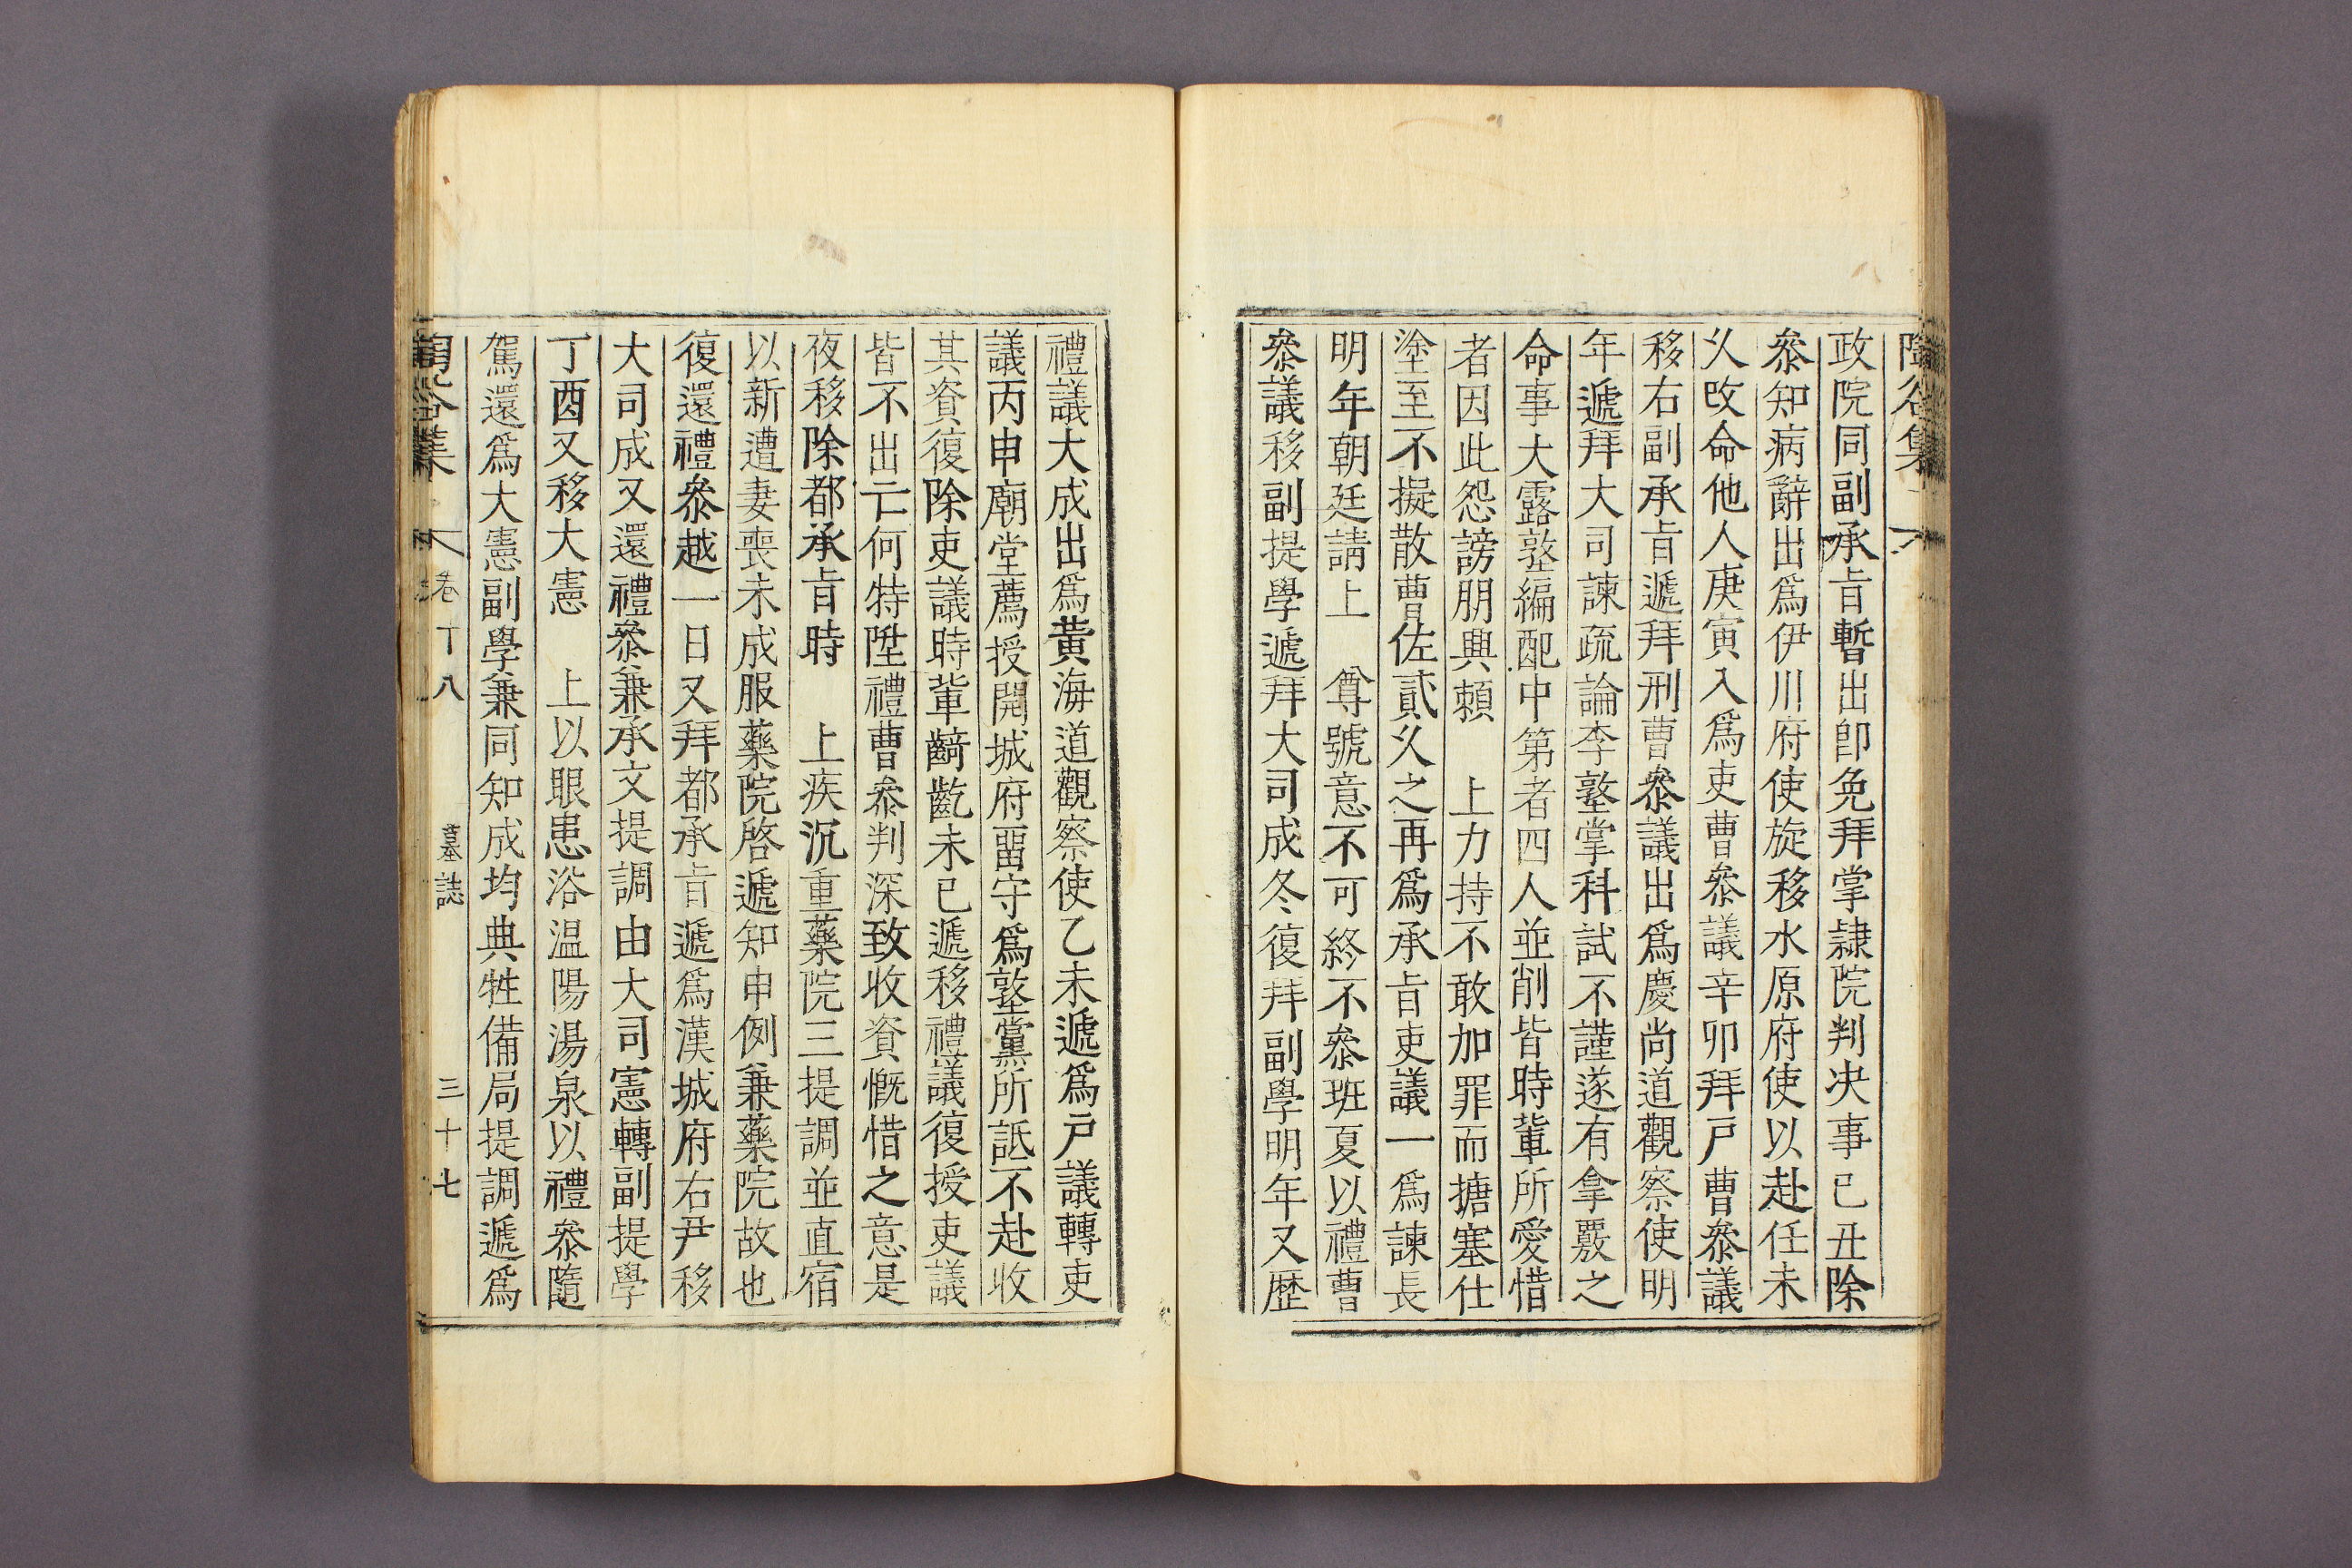 陶谷集
政院同副承旨暫出卽免拜掌隷院判决事己丑除
叅知病辭出爲伊川府使旋移水原府使以赴任未
乆改命他人庚寅入爲吏曹叅議辛卯拜戶曹叅議
移右副承旨遞拜刑曹叅議出爲慶尚道觀察使明
年遞拜大司諫疏論李塾掌科試不謹遂有拿覈之
命事大露塾編配中第者四人並削皆時軰所愛惜
者因此怨謗朋興賴　上力持不敢加罪而搪塞仕
塗至不擬散曹佐貳乆之再爲承旨吏議一爲諫長
明年朝廷請上　尊號意不可終不叅班夏以禮曹
叅議移副提學遞拜大司成冬復拜副學明年又歴
禮議大成出爲黃海道觀察使乙未遞爲戶議轉吏
議丙申廟堂薦授開城府畱守爲塾黨所詆不赴收
其資復除吏議時軰齮齕未已遞移禮議復授吏議
皆不出亡何特陞禮曹叅判深致收資慨惜之意是
夜移除都承旨時　上疾沉重藥院三提調並直宿
以新遭妻喪未成服藥院啓遞知申例兼藥院故也
復還禮叅越一日又拜都承旨遞爲漢城府右尹移
大司成又還禮叅兼承文提調由大司憲轉副提學
丁酉又移大憲　上以眼患浴温陽湯泉以禮叅隨
駕還爲大憲副學兼同知成均典牲備局提調遞爲
陶谷集　卷丁八　墓誌　三十七